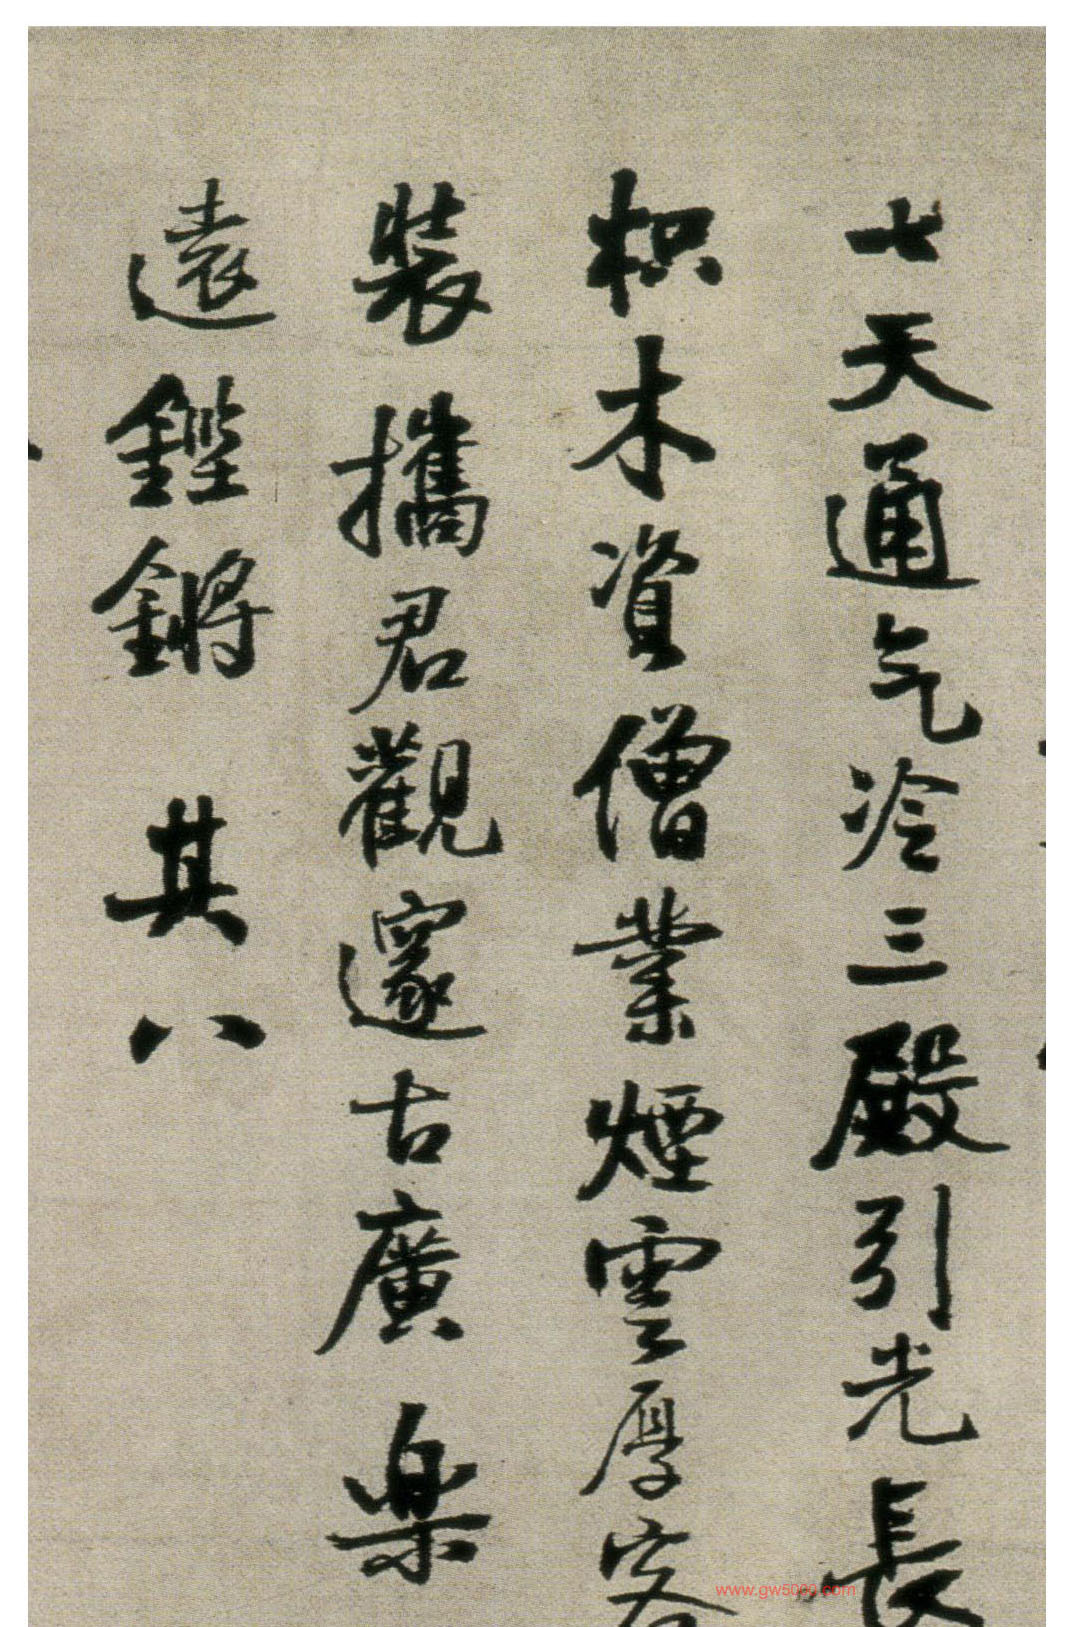 七天通气冷三殿引光長
枳木資僧業煙雲厚客
裝攜君觀邃古廣樂
遠鏗鏘 其八
www.gw5000.com